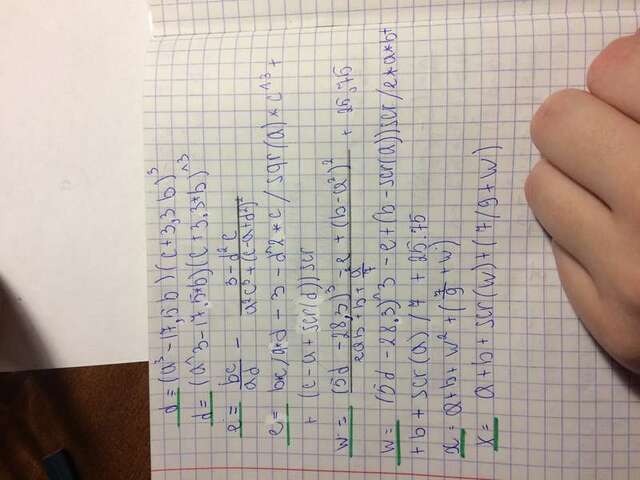 d = (a³ - 17,5 b)(c + 3,3 b)³
d = (a^3 - 17,5*b)(c + 3,3*b)^3
e = bc/ad - (3 - d²c)/(a²c³ + (c - a + d²)²)
e = bc/a*d - 3 - d^2*c / sqr(a)*c^3 +
+ (c - a + scr(d)) scr
w = ((5d - 28,3)³ - e + (b - a²)²)/(2ab + b + a/7) + 25,75
w = (5d - 28,3)^3 - e + (b - scr(a)) scr / e*a*b+
+ b + scr(a) / 7 + 25.75
x = a + b + w² + (7/9 + w)
x = a + b + scr(w) + (7/9 + w)